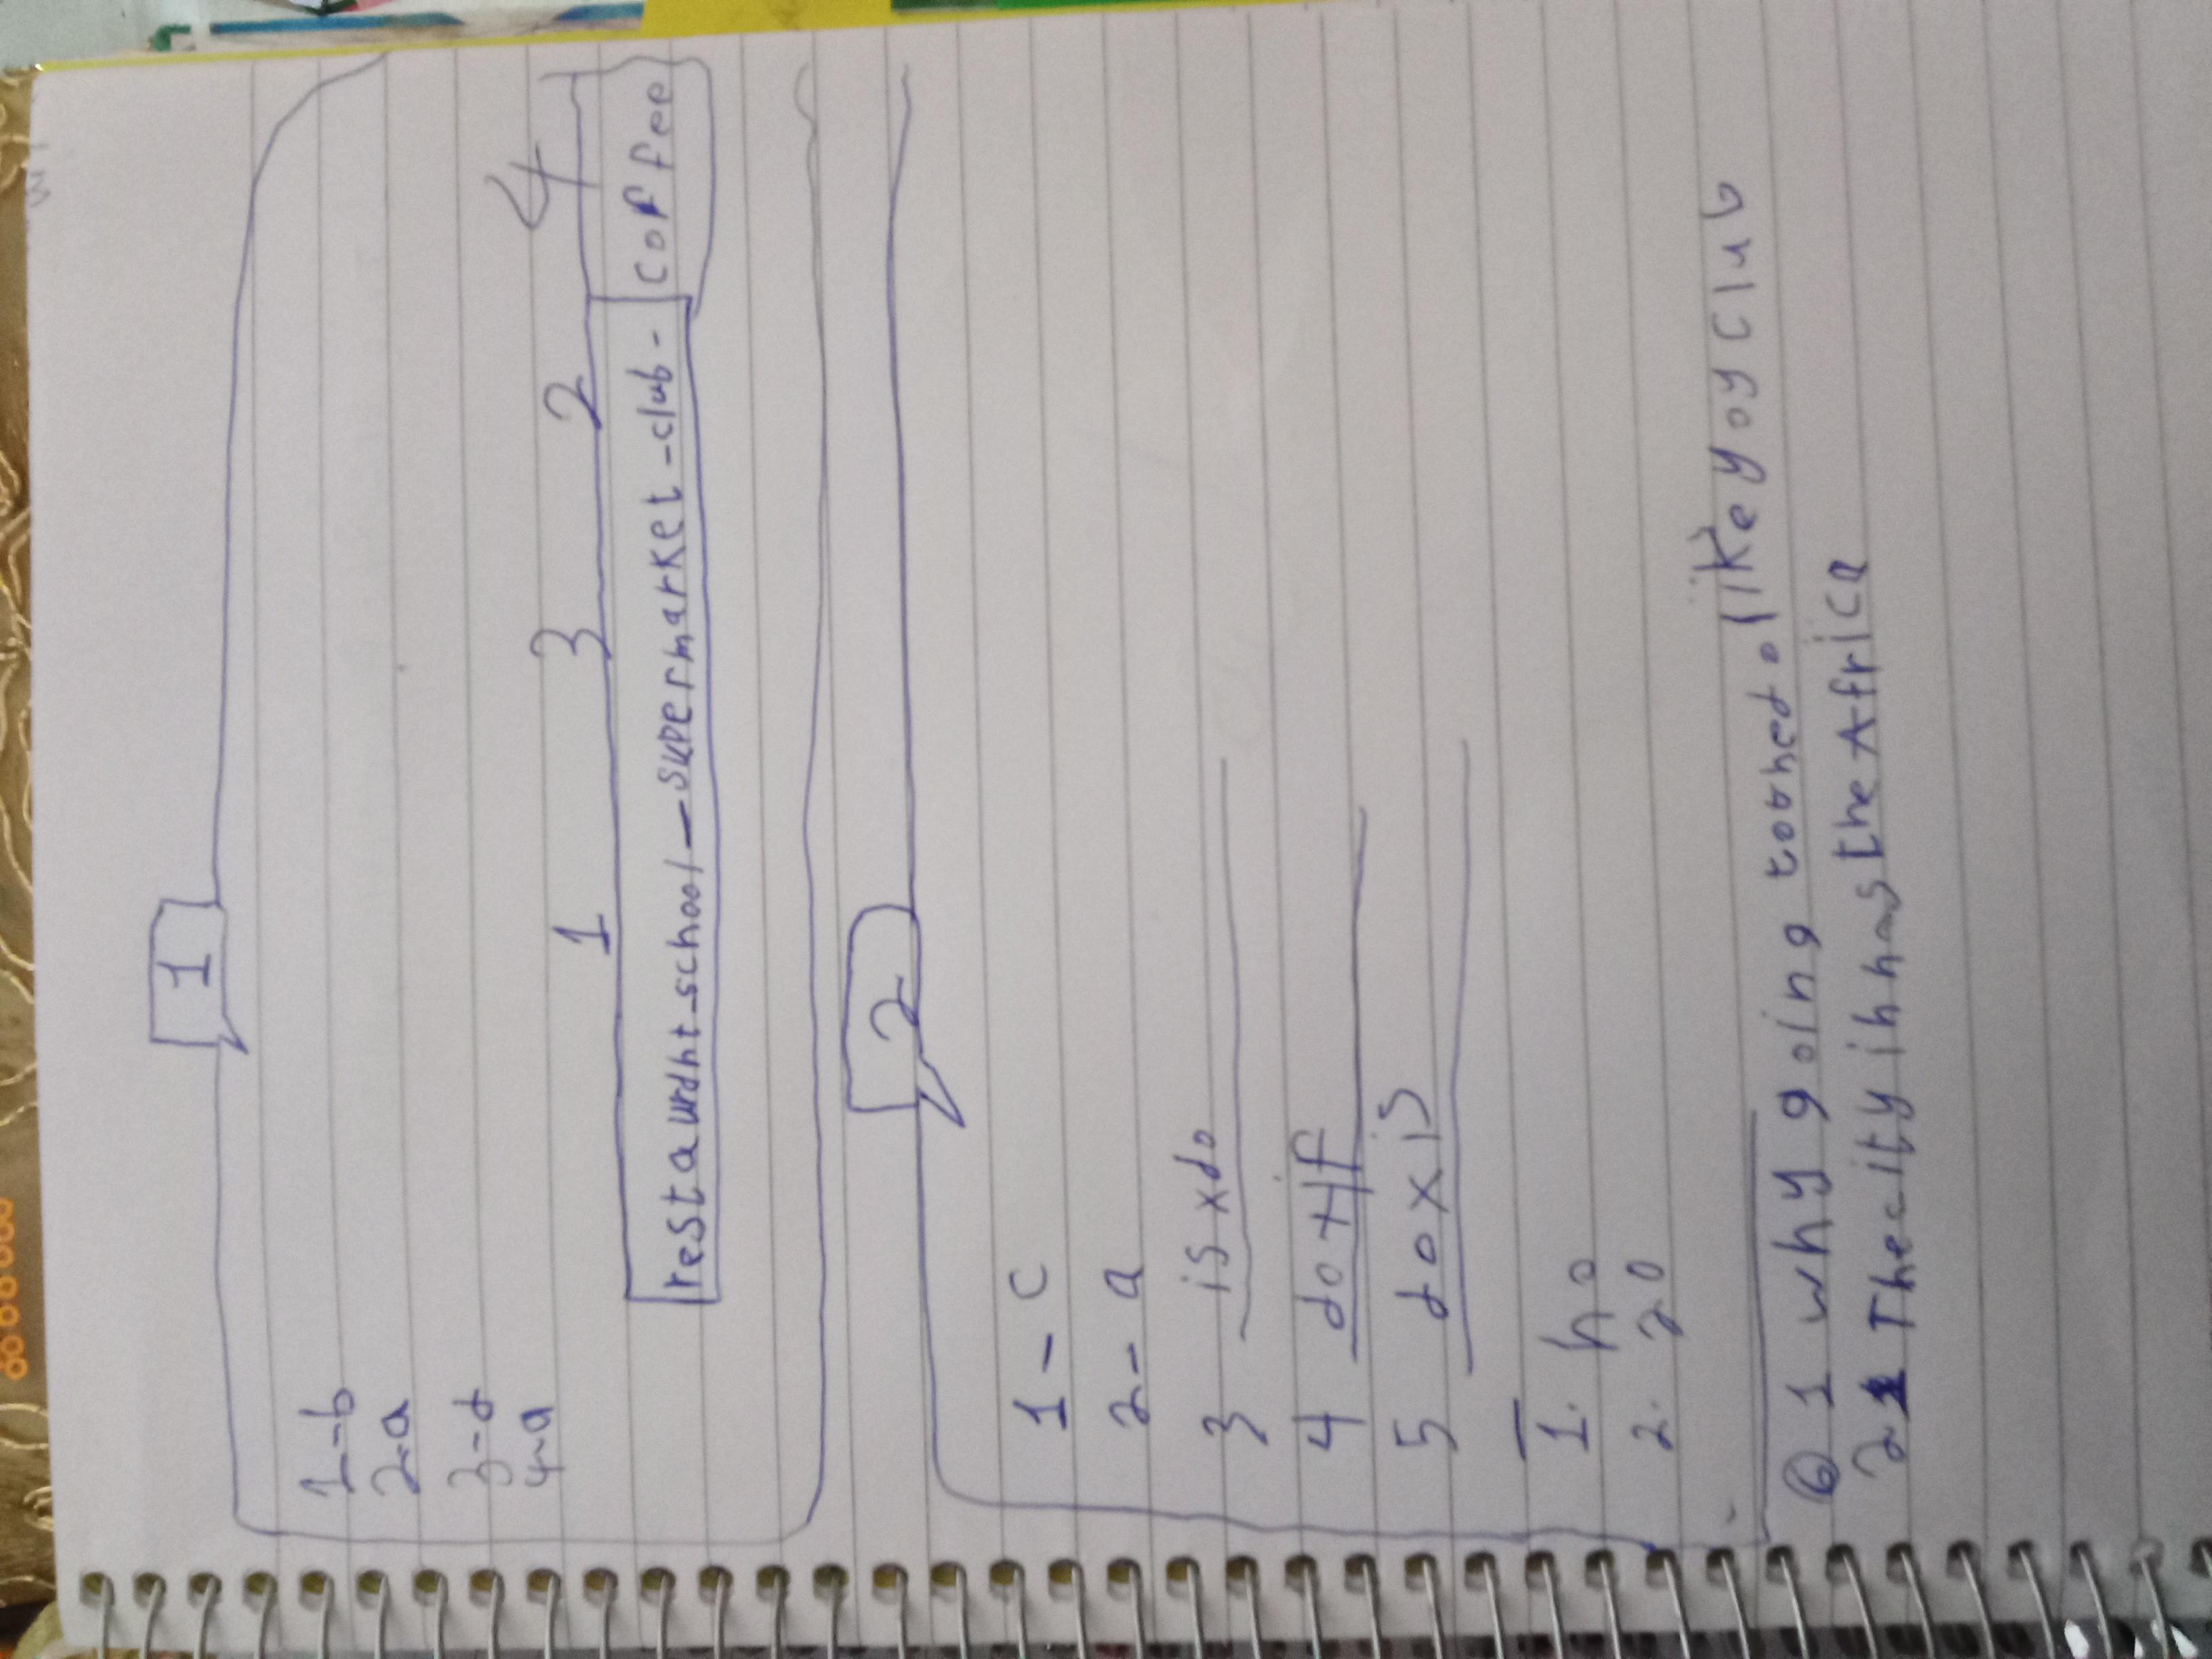 1
1-b
2-a
3-d
4-a
1 3 2 4
restaurdht-school-supermarket-club- coffee
2
1-c
2-a
3 is x do
4 do + if
5 do x is
1. ho
2. 20
6 1 why going like yoy club
2 The city ihhas the Africa